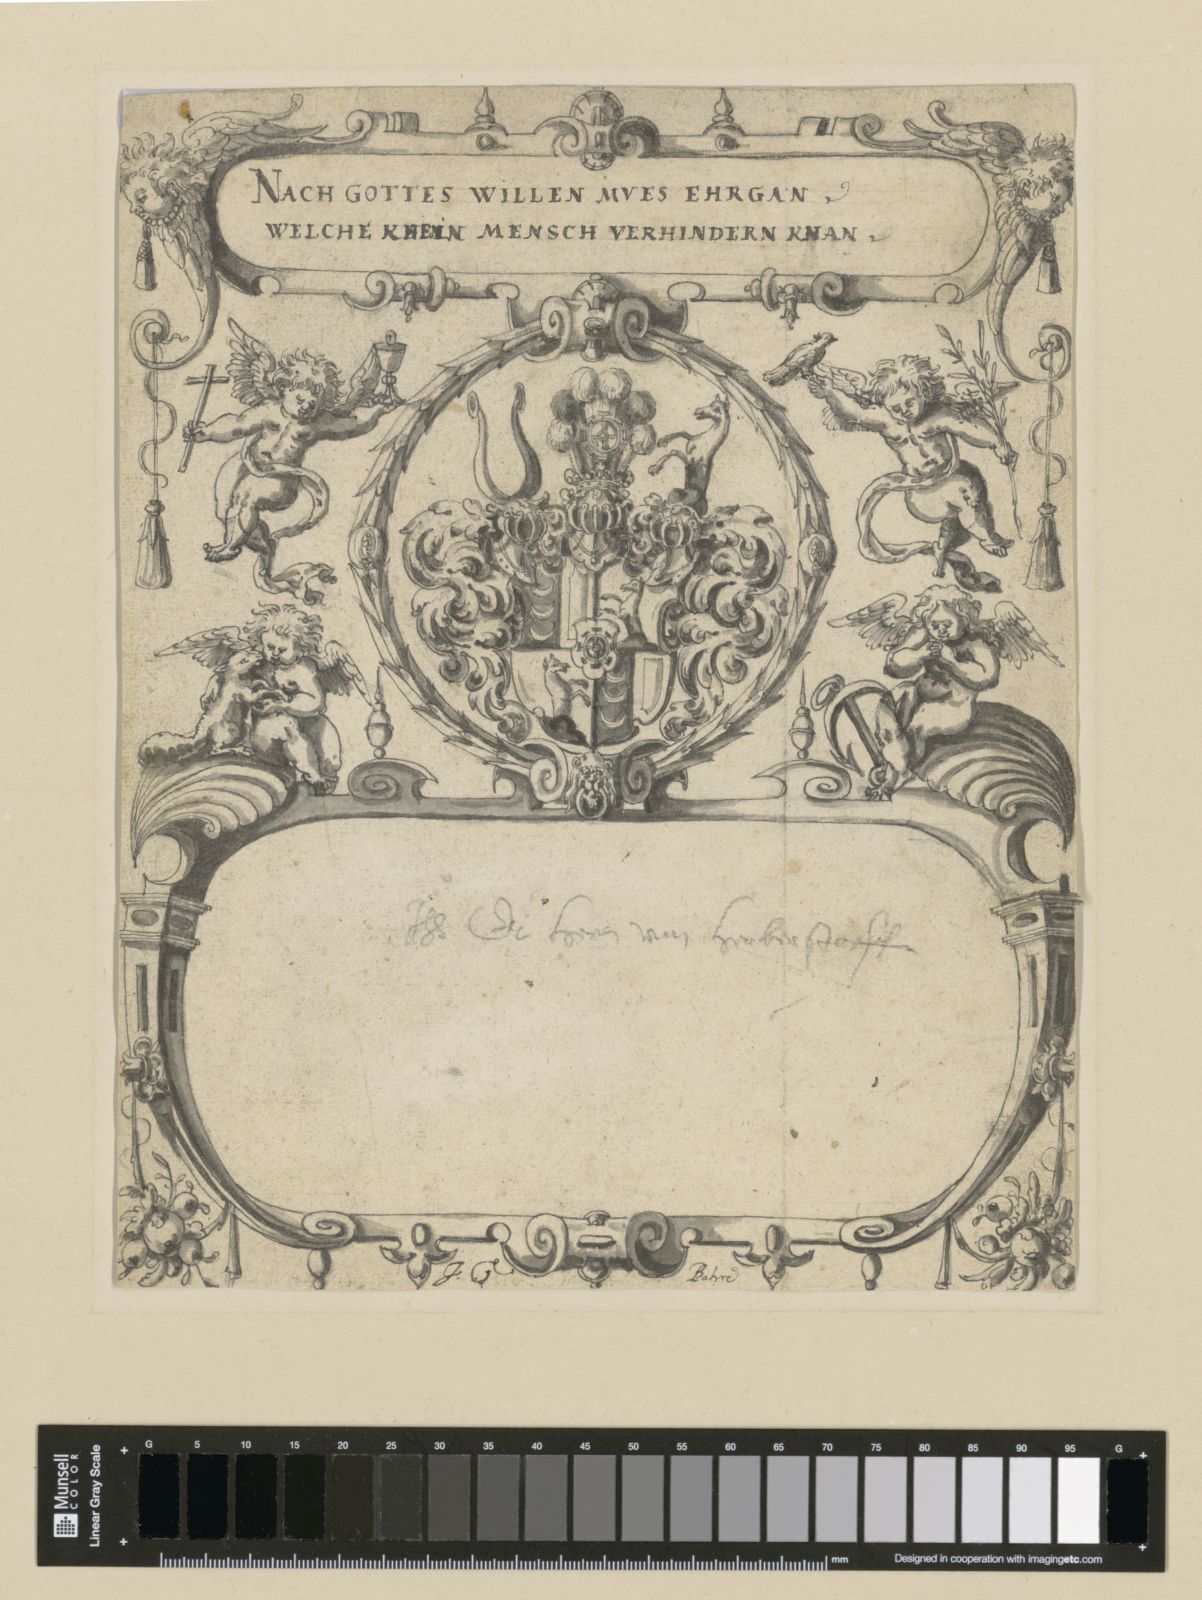 NACH GOTTES WILLEN MVES EHRGAN,
WELCHE KHEIN MENSCH VERHINDERN KHAN,
von Herberstorff
J. G.
Bahre
Munsell
COLOR
Linear Gray Scale
G 5 10 15 20 25 30 35 40 45 50 55 60 65 70 75 80 85 90 95 G
mm
Designed in cooperation with imagingetc.com